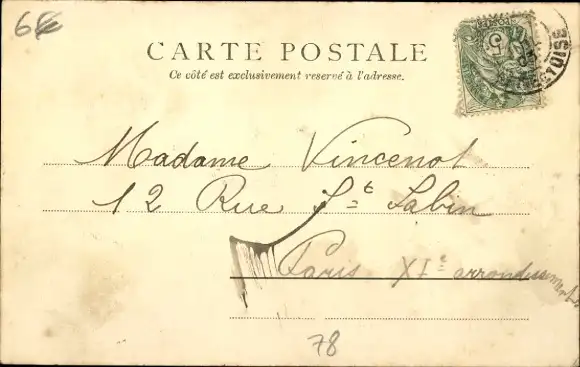 6
CARTE POSTALE
Ce côté est exclusivement reservé à l'adresse.
5
Madame Vincenot
12 Rue St Sabin
Paris XIe arrondissement
78